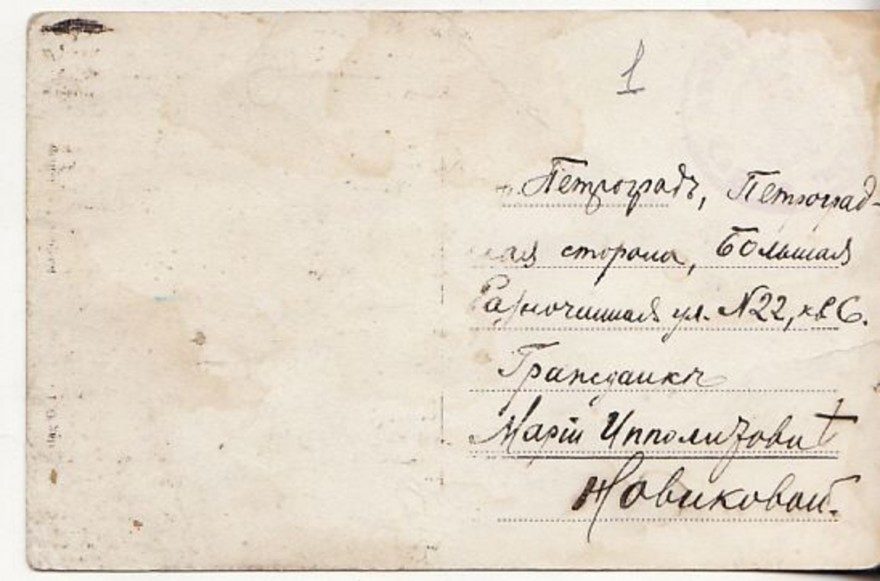 1
Петроградъ, Петроград-
ская сторона, Большая
Разночинная ул. N22, кв 6.
Гражданкѣ
Маріи Ипполитовнѣ
Новиковой.